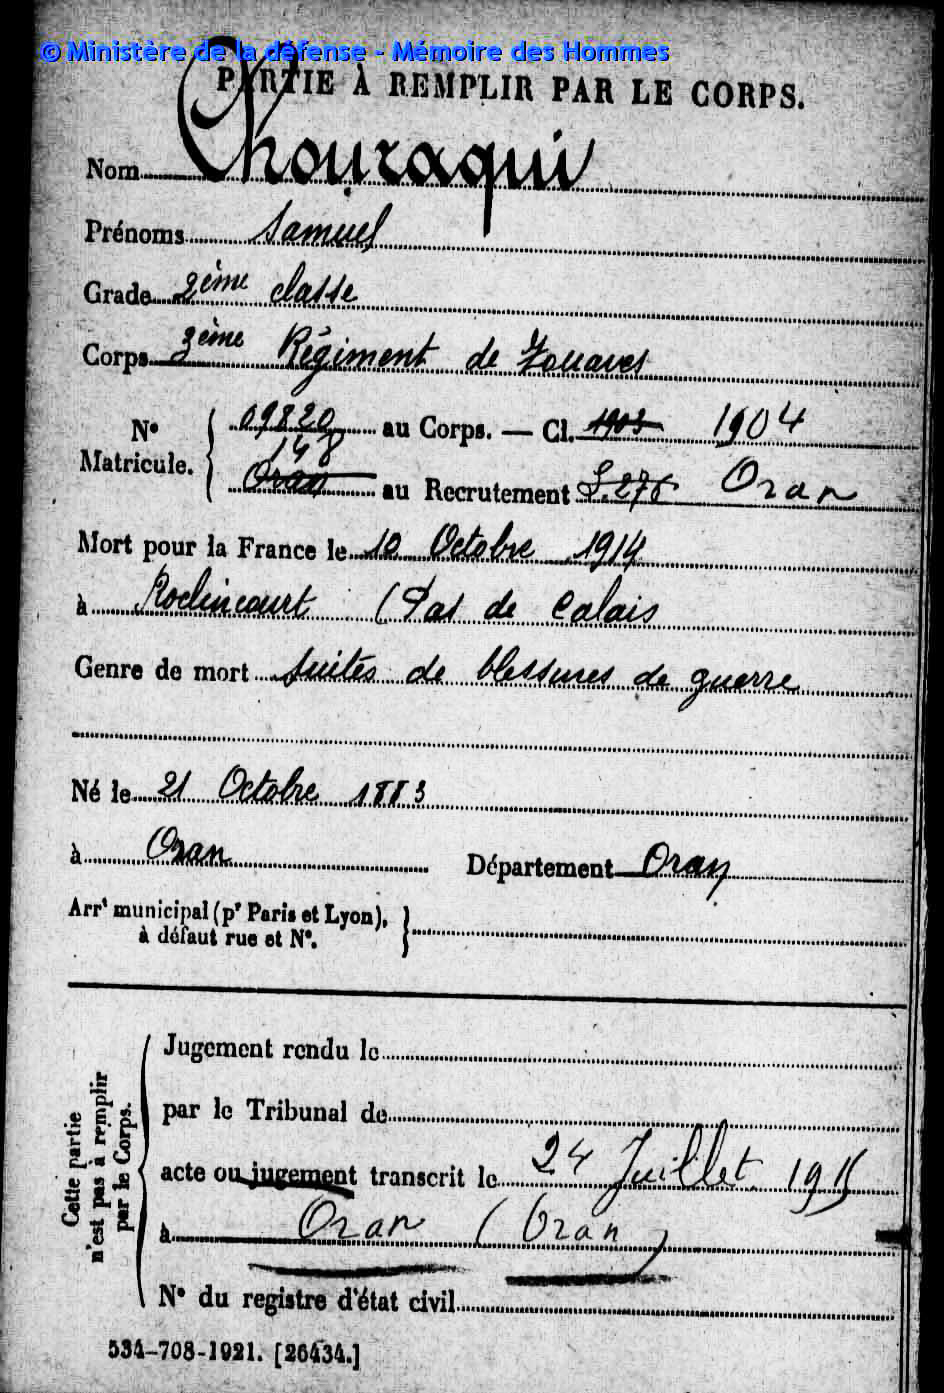 © Ministère de la défense - Mémoire des Hommes
PARTIE À REMPLIR PAR LE CORPS.
Nom Chouraqui
Prénoms Samuel
Grade 2ème classe
Corps 2ème Régiment de Zouaves
N° Matricule. { 09820 au Corps. — Cl. 1903 1904
148
Oran au Recrutement S.276 Oran
Mort pour la France le 10 Octobre 1914
à Roclincourt (Pas de Calais
Genre de mort suites de blessures de guerre
Né le 21 Octobre 1883
à Oran Département Oran
Arrt municipal (pr Paris et Lyon),
à défaut rue et N°. }
Cette partie
n'est pas à remplir
par le Corps.
Jugement rendu le
par le Tribunal de
acte ou jugement transcrit le 24 Juillet 1915
à Oran (Oran)
N° du registre d'état civil
534-708-1921. [26434.]